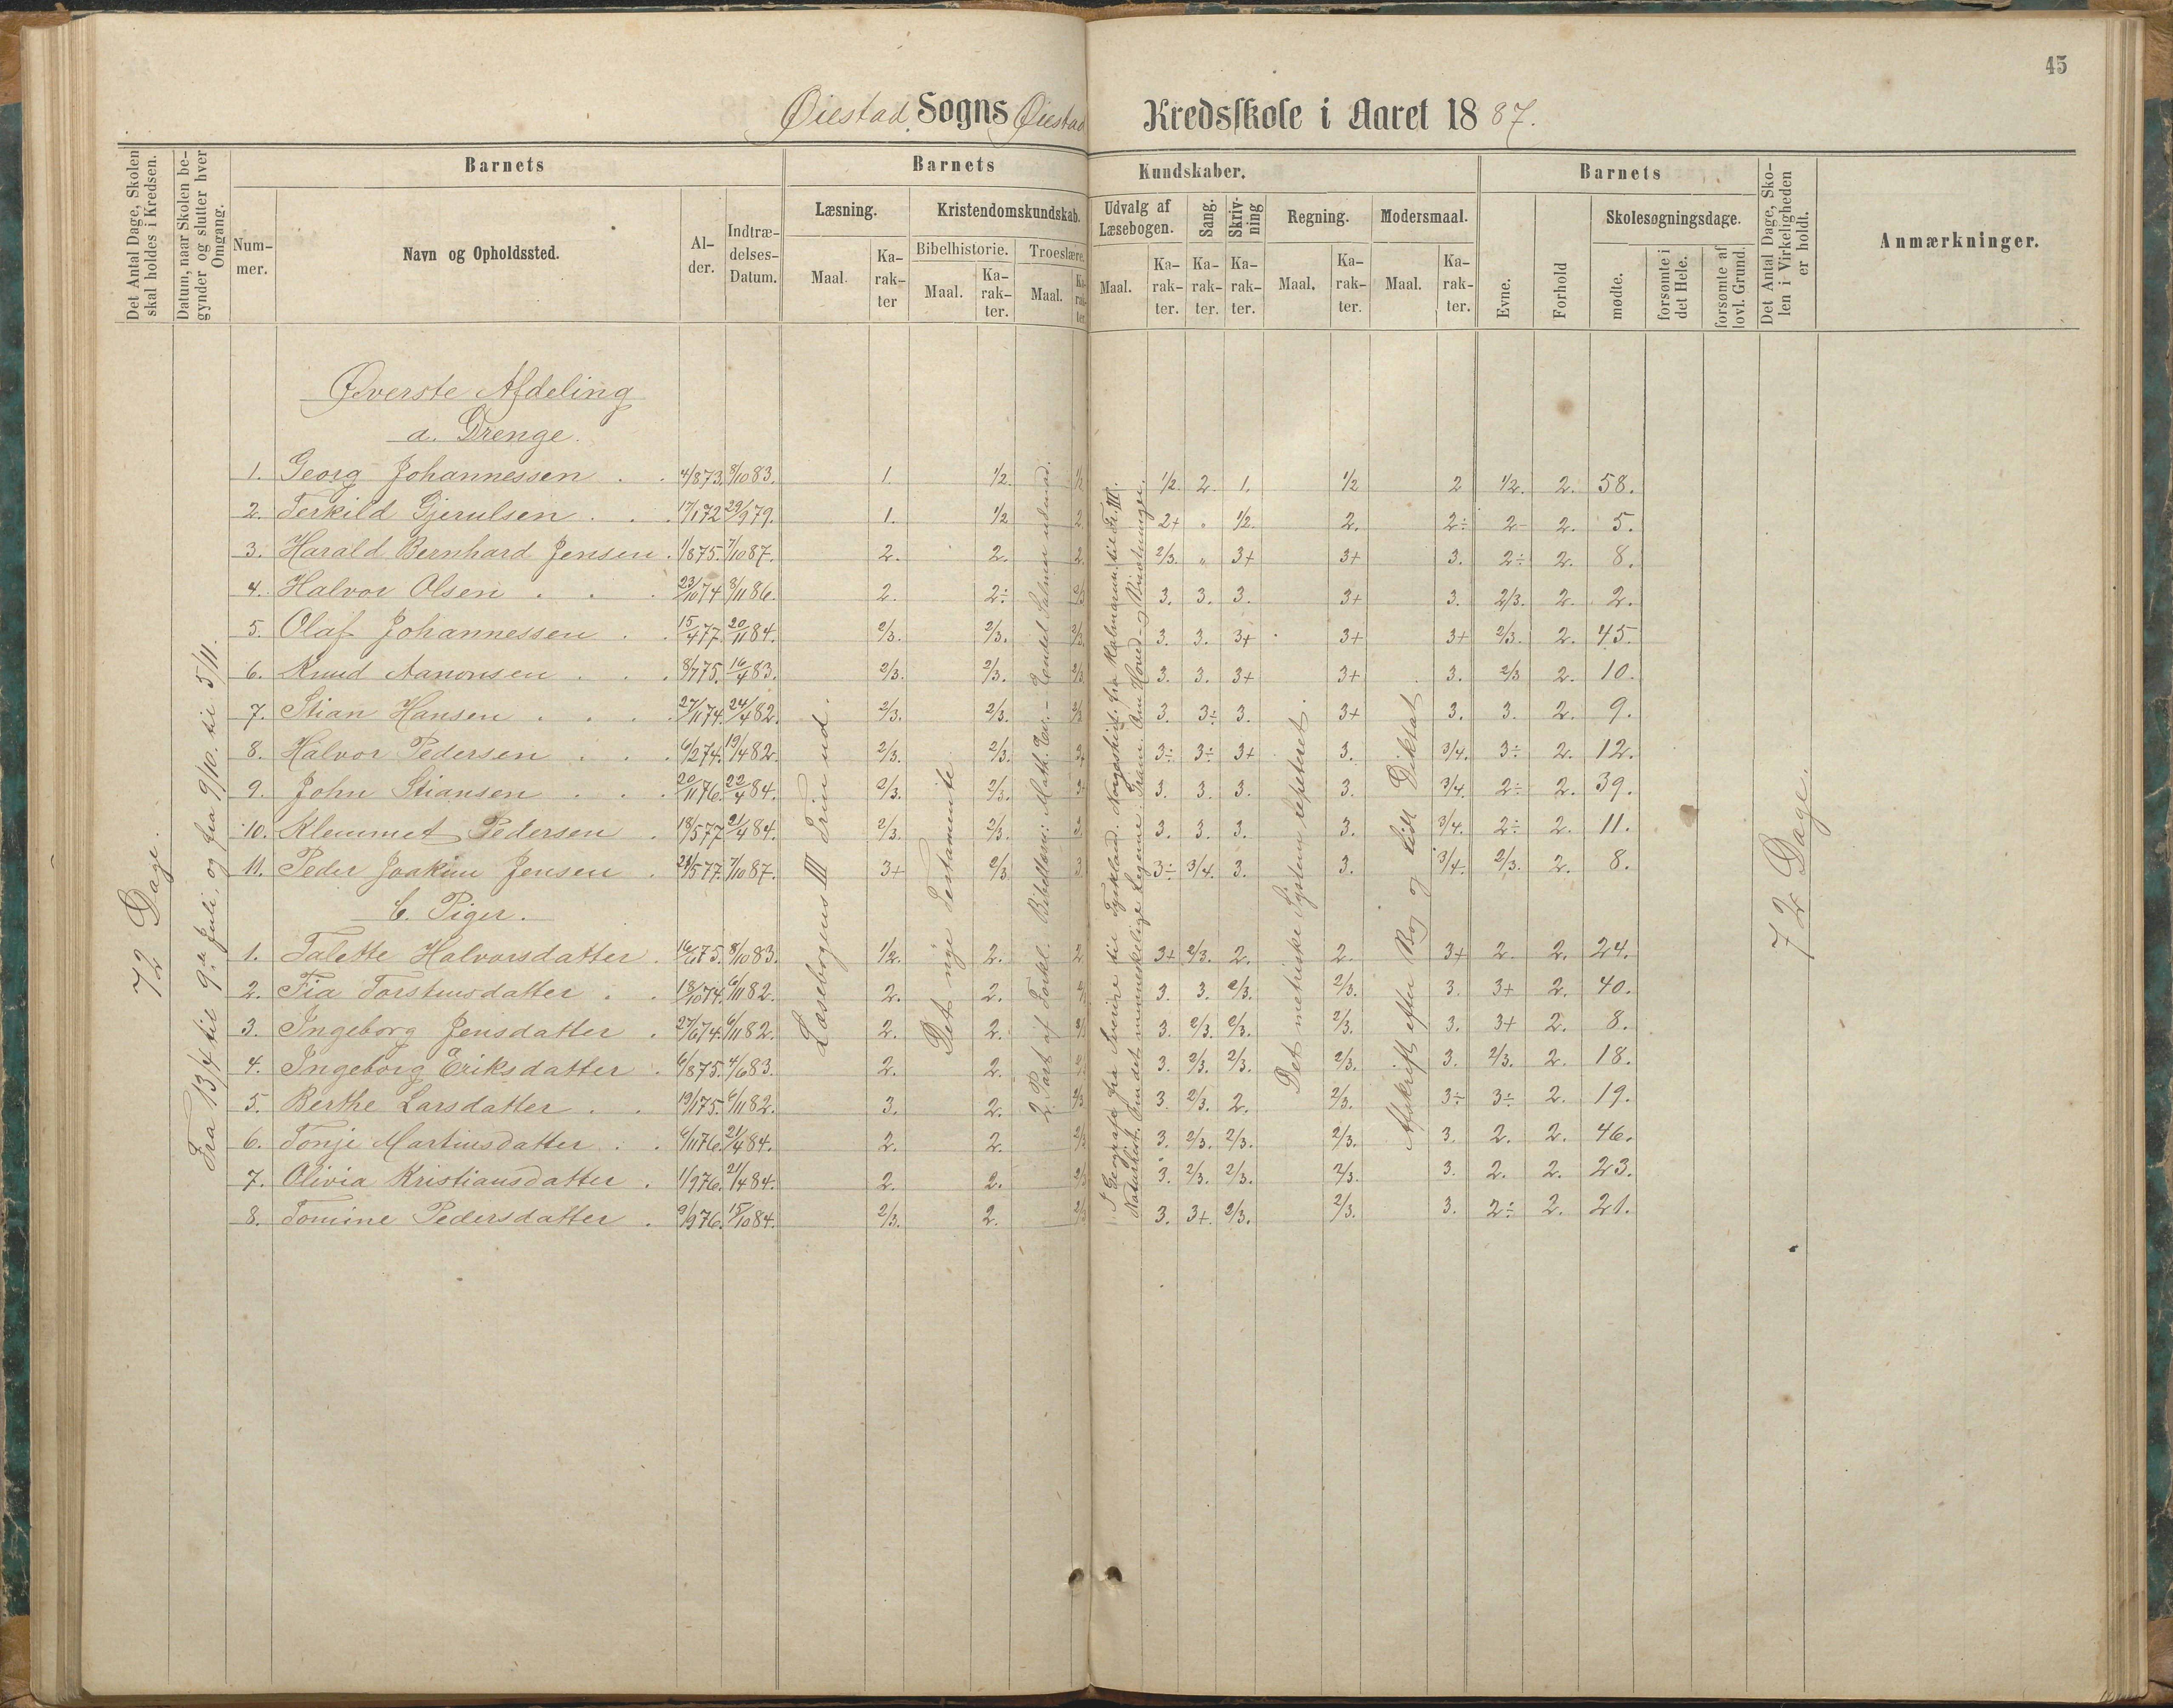 45
Øiestad Sogns Øiestad Kredsskole i Aaret 1887.
Det Antal Dage, Skolen skal holdes i Kredsen.
Datum, naar Skolen begynder og slutter hver Omgang.
Barnets
Nummer.
Navn og Opholdssted.
Alder.
Indtrædelses-Datum.
Barnets Kundskaber.
Læsning.
Maal.
Karakter
Kristendomskundskab.
Bibelhistorie.
Maal.
Karakter.
Troeslære.
Maal.
Karakter.
Udvalg af Læsebogen.
Maal.
Karakter.
Sang.
Karakter.
Skrivning
Karakter.
Regning.
Maal.
Karakter.
Modersmaal.
Maal.
Karakter.
Barnets
Evne.
Forhold
Skolesøgningsdage.
mødte.
forsømte i det Hele.
forsømte af lovl. Grund.
Det Antal Dage, Skolen i Virkeligheden er holdt.
Anmærkninger.
72 Dage.
Fra 13/4 til 9de Juli, og fra 9/10. til 5/11.
Øverste Afdeling
a. Drenge.
1. Georg Johannessen . . 4/873. 8/1083. 1. 1/2. 1/2 1/2. 2. 1. 1/2 2 1/2. 2. 58.
2. Terkild Gjerulsen . . . 17/172 29/979. 1. 1/2 2. 2+ " 1/2. 2. 2÷ 2- 2. 5.
3. Harald Bernhard Jensen . 1/875. 7/1087. 2. 2. 2. 2/3. " 3+ 3+ 3. 2÷ 2. 8.
4. Halvor Olsen . . . 23/1074 8/1186. 2. 2÷ 2/3 3. 3. 3. 3+ 3. 2/3. 2. 2.
5. Olaf Johannessen . . 15/477. 20/1184. 2/3. 2/3. 2/3. 3. 3. 3+ 3+ 3+ 2/3. 2. 45.
6. Knud Aanonsen . . . 8/775. 16/483. 2/3. 2/3. 2/3 3. 3. 3+ 3+ 3. 2/3 2. 10.
7. Stian Hansen . . . . 27/1174. 24/482. 2/3. 2/3. 2/3 3. 3÷ 3. 3+ 3. 3. 2. 9.
8. Halvor Pedersen . . . 6/274. 19/482. 2/3. 2/3. 3+ 3÷ 3÷ 3+ 3. 3/4. 3÷ 2. 12.
9. John Stiansen . . . 20/1176. 22/484. 2/3. 2/3. 3+ 3. 3. 3. 3. 3/4. 2÷ 2. 39.
10. Klemmet Pedersen . 18/577 21/484. 2/3. 2/3. 3. 3. 3. 3. 3. 3/4. 2÷ 2. 11.
11. Peder Joakim Jensen . 28/577. 7/1087. 3+ 2/3 3. 3÷ 3/4. 3. 3. 3/4. 2/3. 2. 8.
b. Piger.
1. Talette Halvorsdatter . 16/675. 8/1083. 1/2. 2. 2 3+ 2/3. 2. 2. 3+ 2. 2. 24.
2. Fia Torstensdatter . . 18/1074. 6/1182. 2. 2. 3. 3. 2/3. 2/3. 3. 3+ 2. 40.
3. Ingeborg Jensdatter . 27/674. 6/1182. 2. 2. 3. 2/3. 2/3. 2/3. 3. 3+ 2. 8.
4. Ingeborg Eriksdatter . 6/875. 4/683. 2. 2. 3. 2/3. 2/3. 2/3. 3. 2/3. 2. 18.
5. Berthe Larsdatter . . 19/175. 6/1182. 3. 2. 2/3 3. 2/3. 2. 2/3. 3÷ 3÷ 2. 19.
6. Tonje Martinsdatter . . 6/1176. 21/484. 2. 2. 2/3 3. 2/3. 2/3. 2/3. 3. 2. 2. 46.
7. Olivia Kristiansdatter . 1/976. 21/484. 2. 2. 2/3 3. 2/3. 2/3. 2/3. 3. 2. 2. 23.
8. Tomine Pedersdatter . 9/976. 15/1084. 2/3. 2. 2/3 3. 3+. 2/3. 2/3. 3. 2÷ 2. 21.
Læsebogens III Trin ud.
Det nye Testamente
2. Part af Forkl. Bibellæsn: Math. Ev. - Endel Salmer udenad.
I Geografi fra Sverige til Tyskland. Norgeshist. fra Kalmarun. til Fr. III.
Naturhist. Om det menneskelige Legeme. Gram. Om Hoved- og Bisætninger.
Det metriske System repeteret.
Afskrift efter Bog og lidt Diktat
72 Dage.